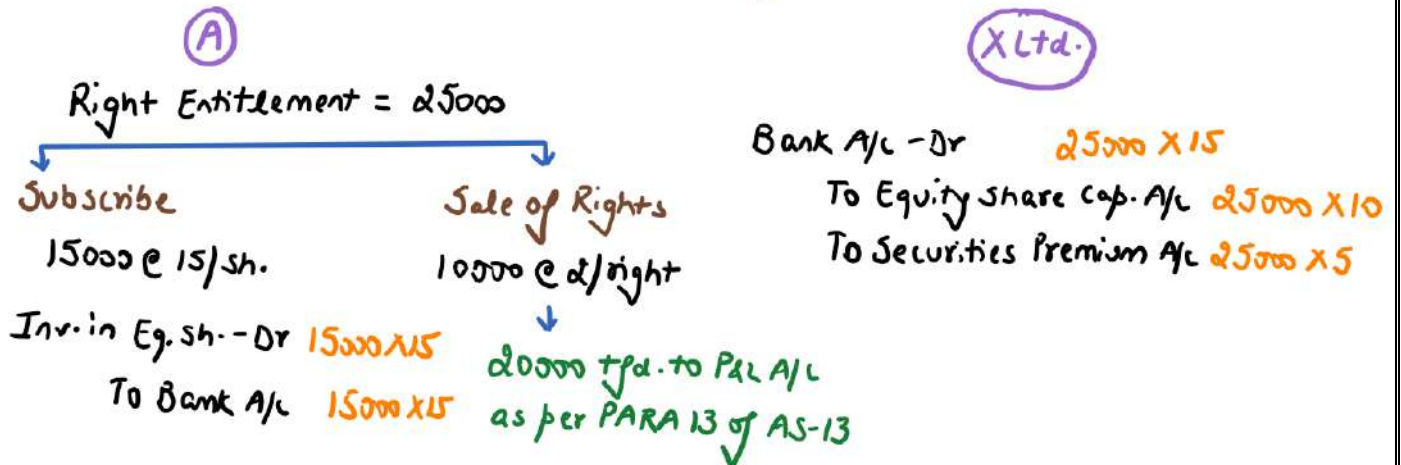 A
Right Entitlement = 25000
Subscribe
15000 @ 15/sh.
Inv. in Eq. sh. - Dr 15000 X 15
To Bank A/c 15000 X 15
Sale of Rights
10000 @ 2/right
20000 tfd. to P&L A/c
as per PARA 13 of AS-13
X Ltd.
Bank A/c - Dr 25000 X 15
To Equity share cap. A/c 25000 X 10
To Securities Premium A/c 25000 X 5